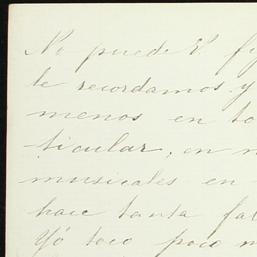 No puede V. fi
te recordamos y
menos en to
ticular, en m
musicales en
hace tanta fal
Yo toco poco m